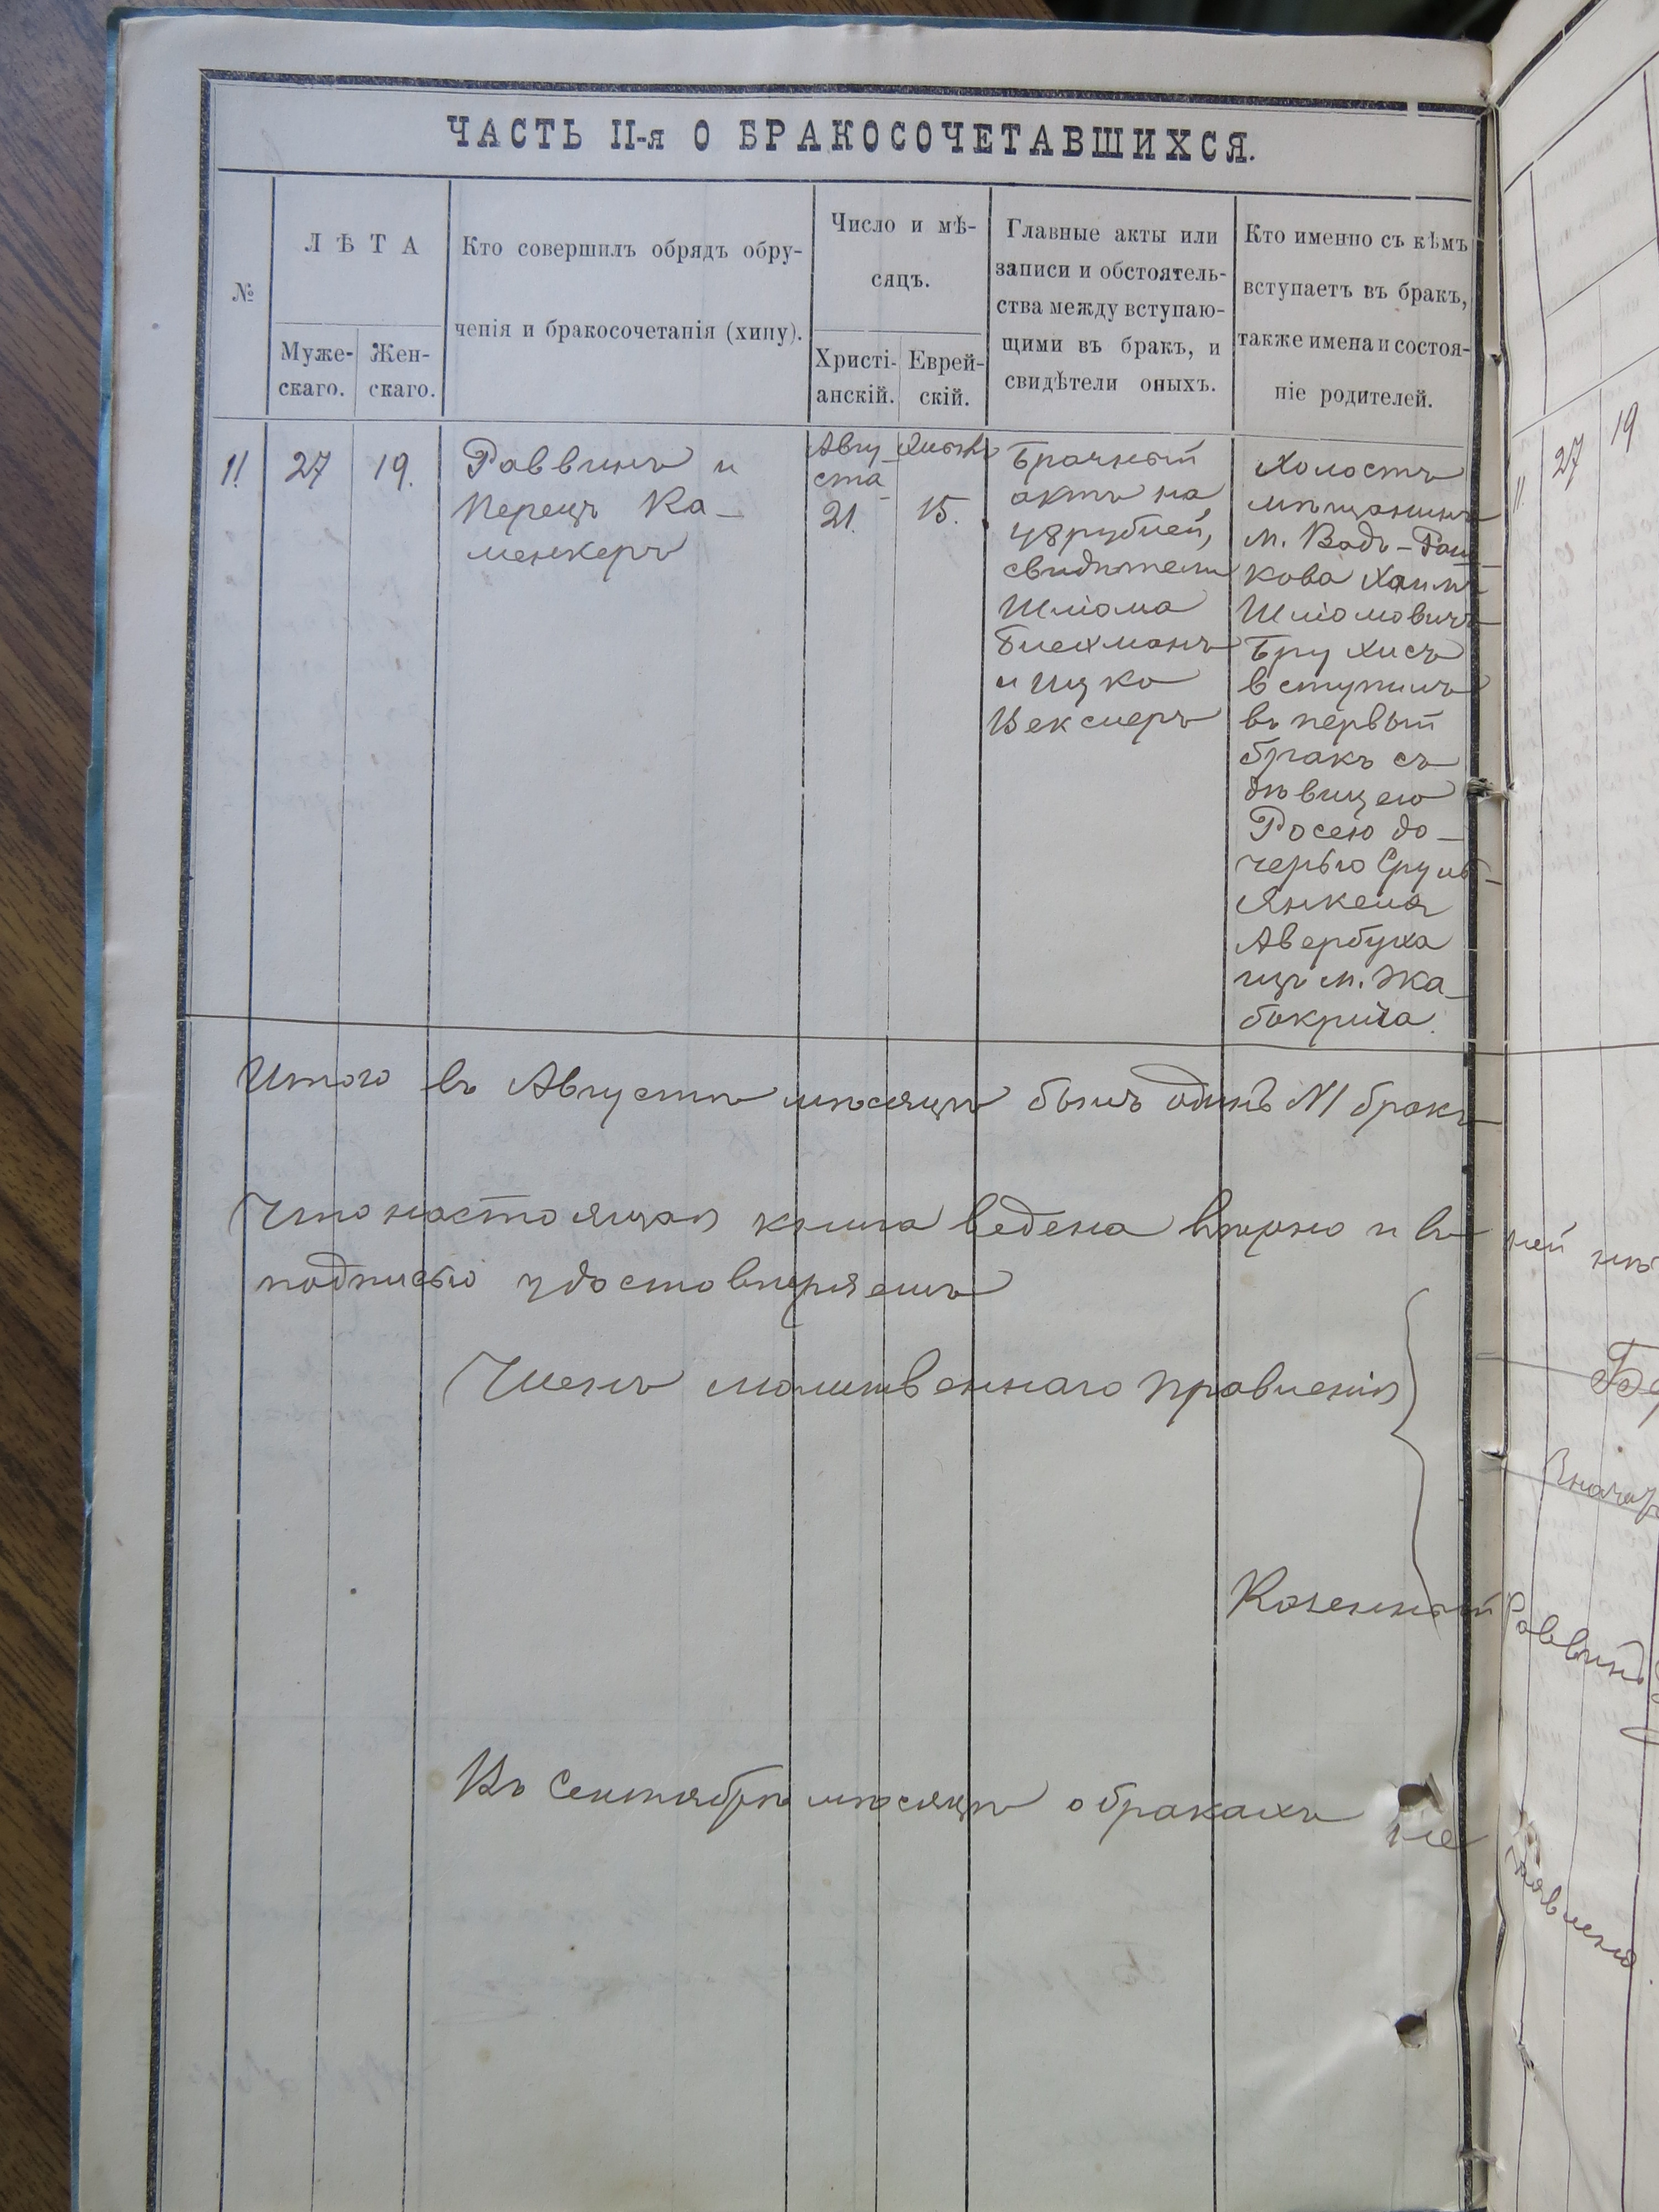 ЧАСТЬ II-я О БРАКОСОЧЕТАВШИХСЯ.
№
ЛѢТА
Муже-
скаго.
Жен-
скаго.
Кто совершилъ обрядъ обру-
ченія и бракосочетанія (хипу).
Число и мѣ-
сяцъ.
Христі-
анскій.
Еврей-
скій.
Главные акты или
записи и обстоятель-
ства между вступаю-
щими въ бракъ, и
свидѣтели оныхъ.
Кто именно съ кѣмъ
вступаетъ въ бракъ,
также имена и состоя-
ніе родителей.
11
27
19.
Раввинъ и
Перецъ Ка-
менкеръ
Авгу-
ста
21.
15.
Брачный
актъ на
48 рублей,
свидѣтели
Шліома
Блехманъ
и Ицко
Векслеръ
Холостъ
мѣщанинъ
м. Вадъ-Раш-
кова Хаимъ
Шліомовичъ
Брухисъ
вступилъ
въ первый
бракъ съ
дѣвицею
Росею до-
черью Сруль-
Янкеля
Авербуха
изъ м. Жа-
бокрича.
Итого въ Августѣ мѣсяцѣ былъ одинъ №1 бракъ
Что настоящая книга ведена вѣрно и въ ней
подписью удостовѣряемъ
Членъ молитвеннаго правленія
Казенный Раввинъ
Въ Сентябрѣ мѣсяцѣ о бракахъ не
27
19